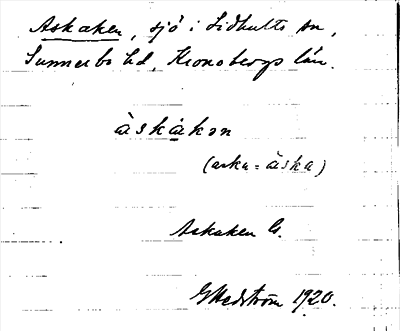 Askaken, sjö i Lidhults sn,
Sunnerbo hd, Kronobergs län.
àskàkən
(aska = àska)
Askaken G.
G Hedström 1920.